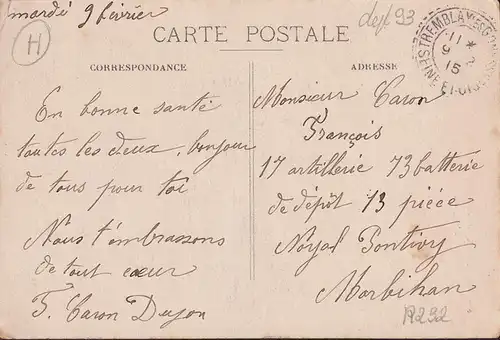 mardi 9 février
H
dept 93
CARTE POSTALE
TREMBLAY
11 *
9 2
15
SEINE ET OISE
CORRESPONDANCE
En bonne santé
toutes les deux, bonjour
de tous pour toi
Nous t'embrassons
de tout cœur
F. Caron
ADRESSE
Monsieur Caron
François
17 artillerie 73 batterie
de dépôt 13 pièce
Noyal Pontivy
Morbihan
19292